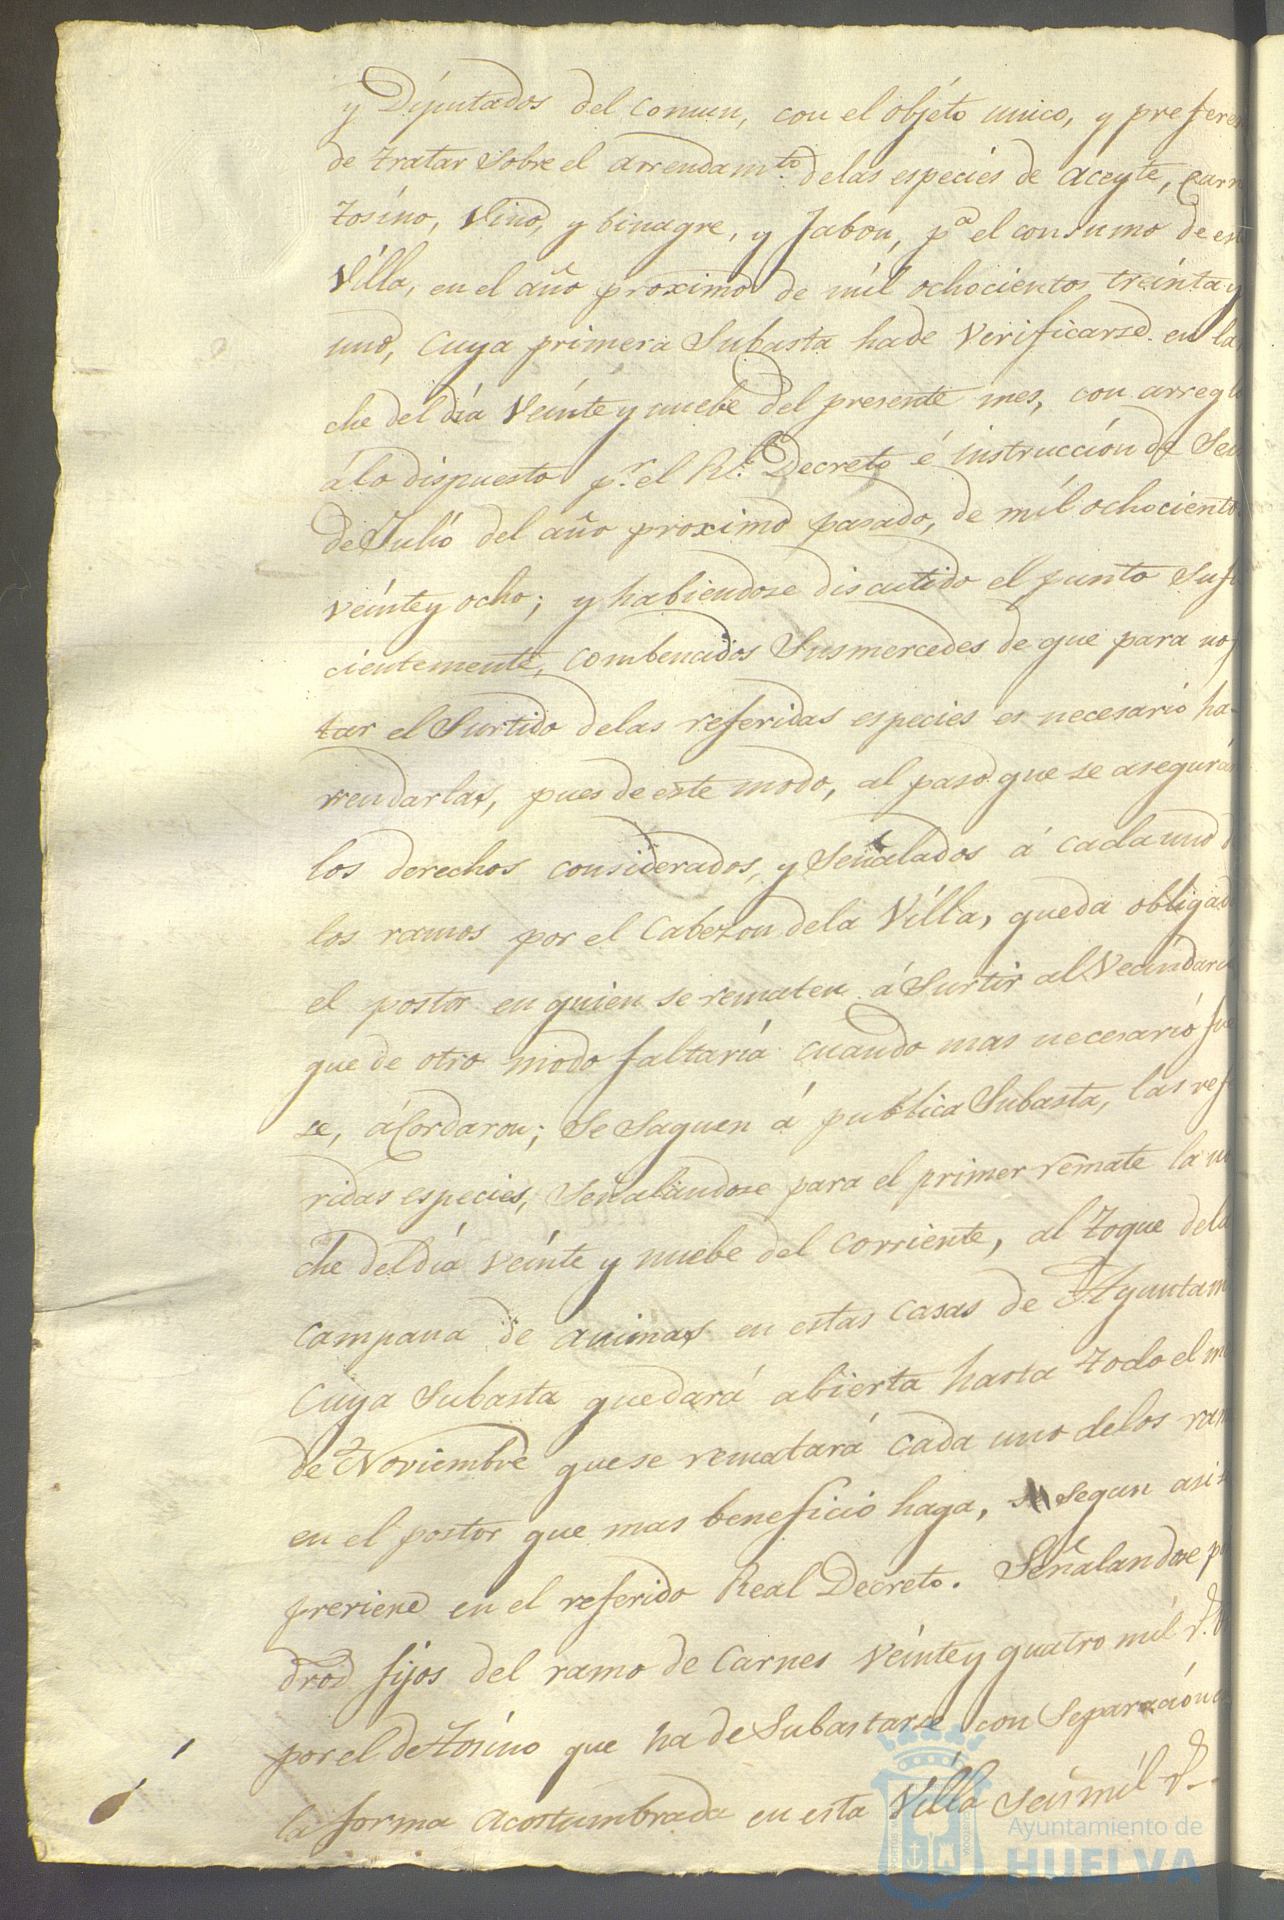 y Diputados del Comun, con el objeto unico, y prefere
de tratar Sobre el arrendam.to delas especies de aceyte, Carn
tosino, Vino, y binagre, y Jabon, p.a el consumo de es
Villa, en el año proximo de mil ochocientos treinta y
uno, Cuya primera Subasta hade Verificarse en la
che del dia Veinte y nuebe del presente mes, con arreglo
álo dispuesto p.r el Rl. Decreto é instruccion de Sei
de Julio del año proximo pasado, de mil ochociento
veinte y ocho; y habiendose discutido el punto Sufi
cientemente, combencidos Susmercedes de que para no f
tar el Surtido delas referidas especies es necesario ha-
rrendarlas, pues de este modo, al paso que se asegurán
los derechos considerados, y Señalados á cada uno d
los ramos por el Cabezon dela Villa, queda obligado
el postor en quien se rematen á Surtir al Vecindario
que de otro modo faltaría cuando mas necesario fue
se, áCordaron; Se Saquen á publica Subasta, las refe
ridas especies, Señalandose para el primer remate la no
che del dia veinte y nuebe del corriente, al toque dela
campana de animas en estas casas de Ayuntami
Cuya Subasta quedará abierta hasta todo el m
de Noviembre que se rematará cada uno delos ram
en el postor que mas beneficio haga, segun asi s
previene en el referido Real Decreto. Señalandose p
dros fijos del ramo de Carnes Veinte y quatro mil r.s
por el de tosino que ha de Subastarse con Separacion
la forma acostumbrada en esta Villa Seis mil r.s
Ayuntamiento de
HUELVA